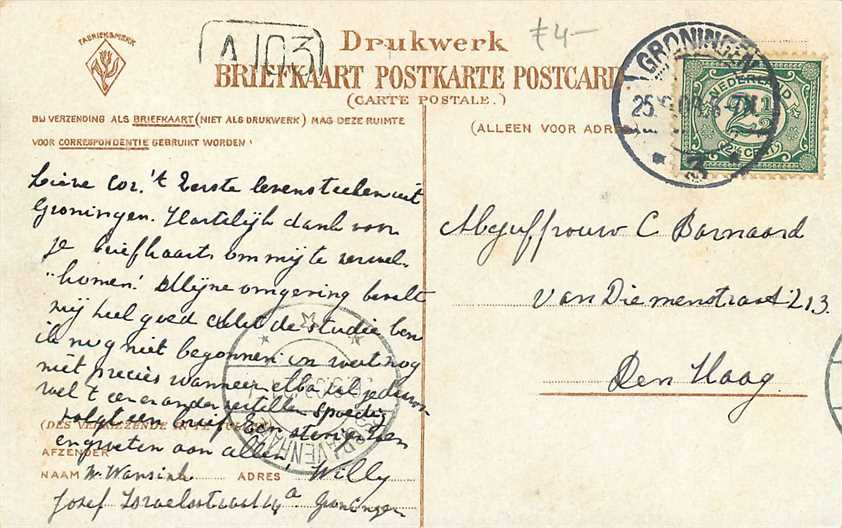 FABRIEKSMERK
A 103
f 4-
Drukwerk
BRIEFKAART POSTKARTE POSTCARD
(CARTE POSTALE.)
BIJ VERZENDING ALS BRIEFKAART (NIET ALS DRUKWERK) MAG DEZE RUIMTE
VOOR CORRESPONDENTIE GEBRUIKT WORDEN
(ALLEEN VOOR ADRES
GRONINGEN
25
NEDERLAND
2½
2½ CENT
Lieve Cor! 't Eerste levensteeken uit
Groningen. Hartelijk dank voor
je briefkaart om mij te verwel-
komen! Mijne omgeving bevalt
mij heel goed. Met de studie ben
ik nog niet begonnen en weet nog
niet precies wanneer. Elba zal je daarvan
wel 't een en ander vertellen. Spoedig
volgt een brief. Een stevige
en groeten aan allen,
Willy
(DES VERKIEZENDE IN TE VULLEN)
AFZENDER
NAAM W. Wansink ADRES
Josef Israelsstraat 14a Groningen
'S GRAVENHAGE
Mejuffrouw C Barnaard
Van Diemenstraat 213.
Den Haag.